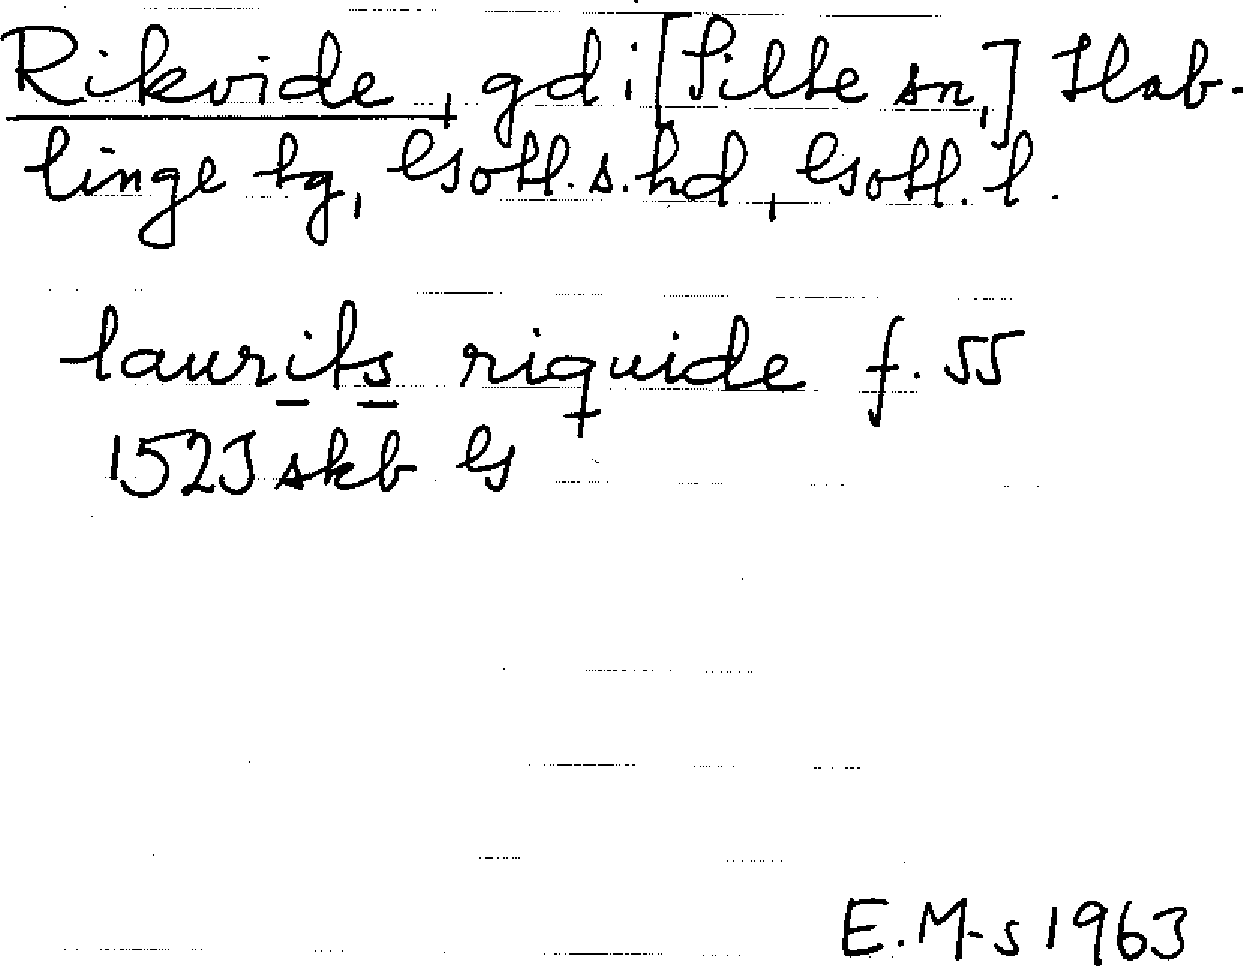 Rikvide, gd i [Silte sn,] Hab-
linge tg, Gotl. s. hd, Gotl. l.
laurits riquide f. 55
1523 skb G
E. M-s 1963